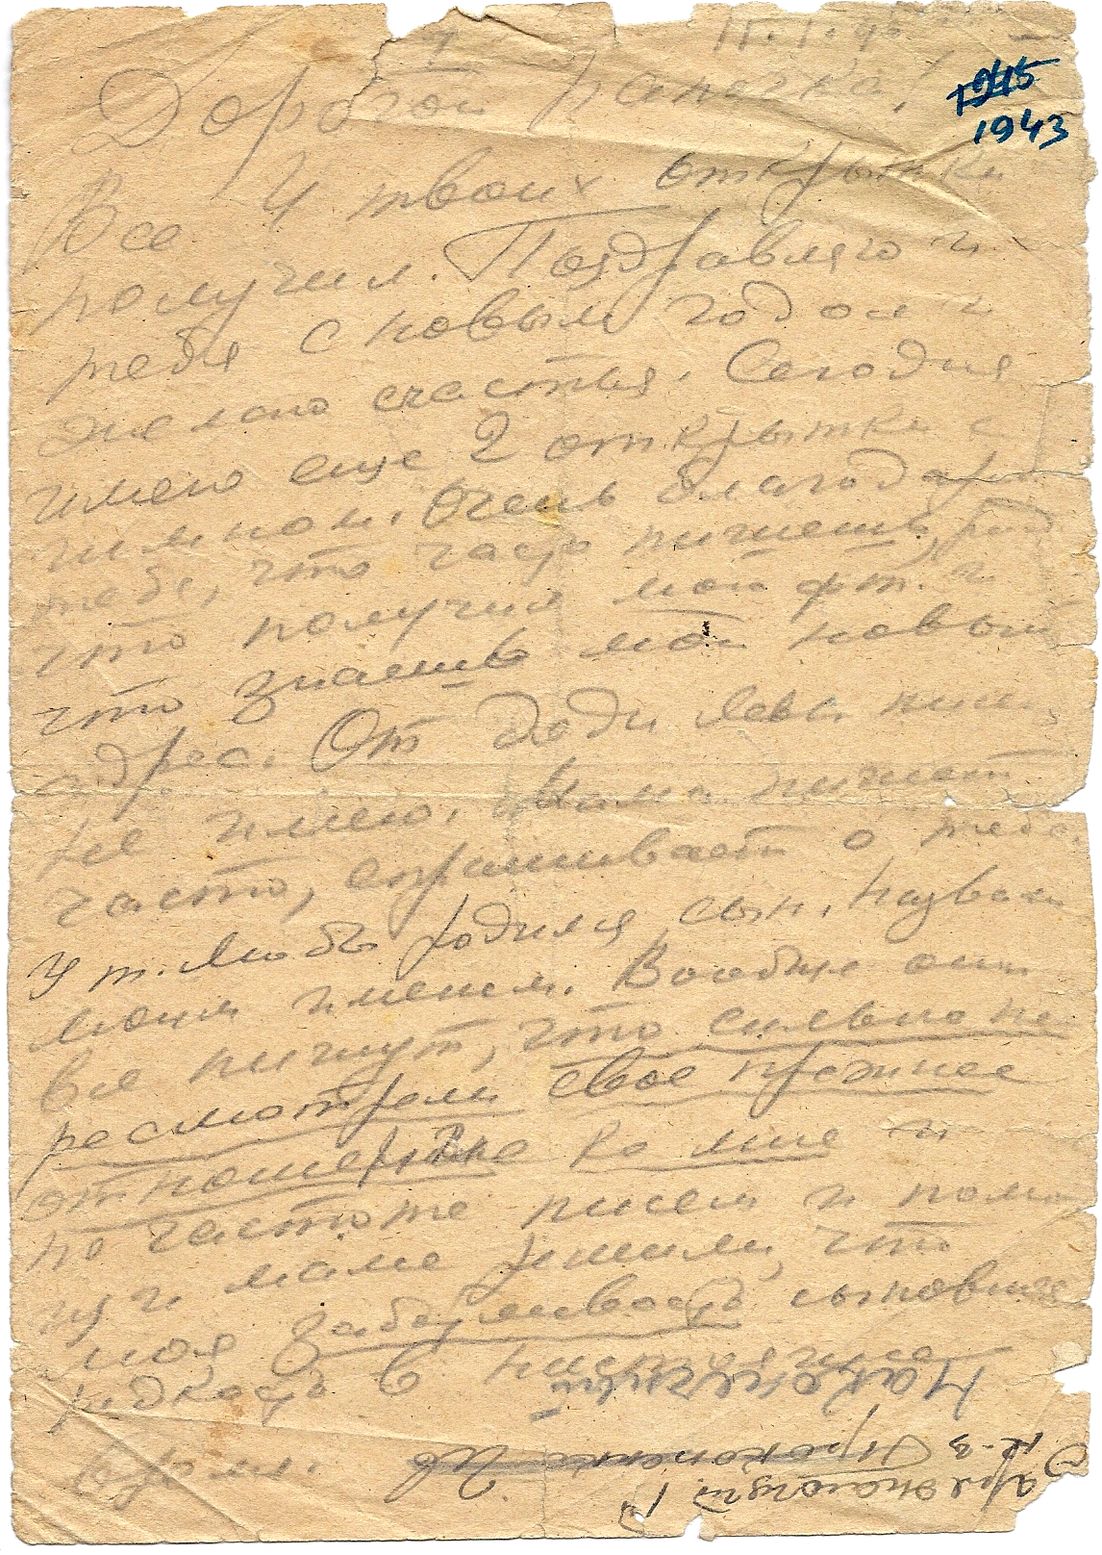 11.1.
1945
1943
Дорогой папочка!
Все 4 твоих открытки
получил. Поздравляю и
тебя с новым годом и
желаю счастья. Сегодня
имею еще 2 открытки с
Очень благодарю
тебе, что часто пишешь, рад
что получил мои фт. и
что знаешь мой новый
адрес. От дяди Левы пищ
не имею. Мама пишет
часто, спрашивает о тебе.
У т. Любы родился сын, назвали
моим именем. Вообще они
все пишут, что сильно пе
ресмотрели свое прежнее
отношение ко мне и
по частоте писем и помо
щи маме решили, что
моя забывчивость сыновняя
редкость в
время.